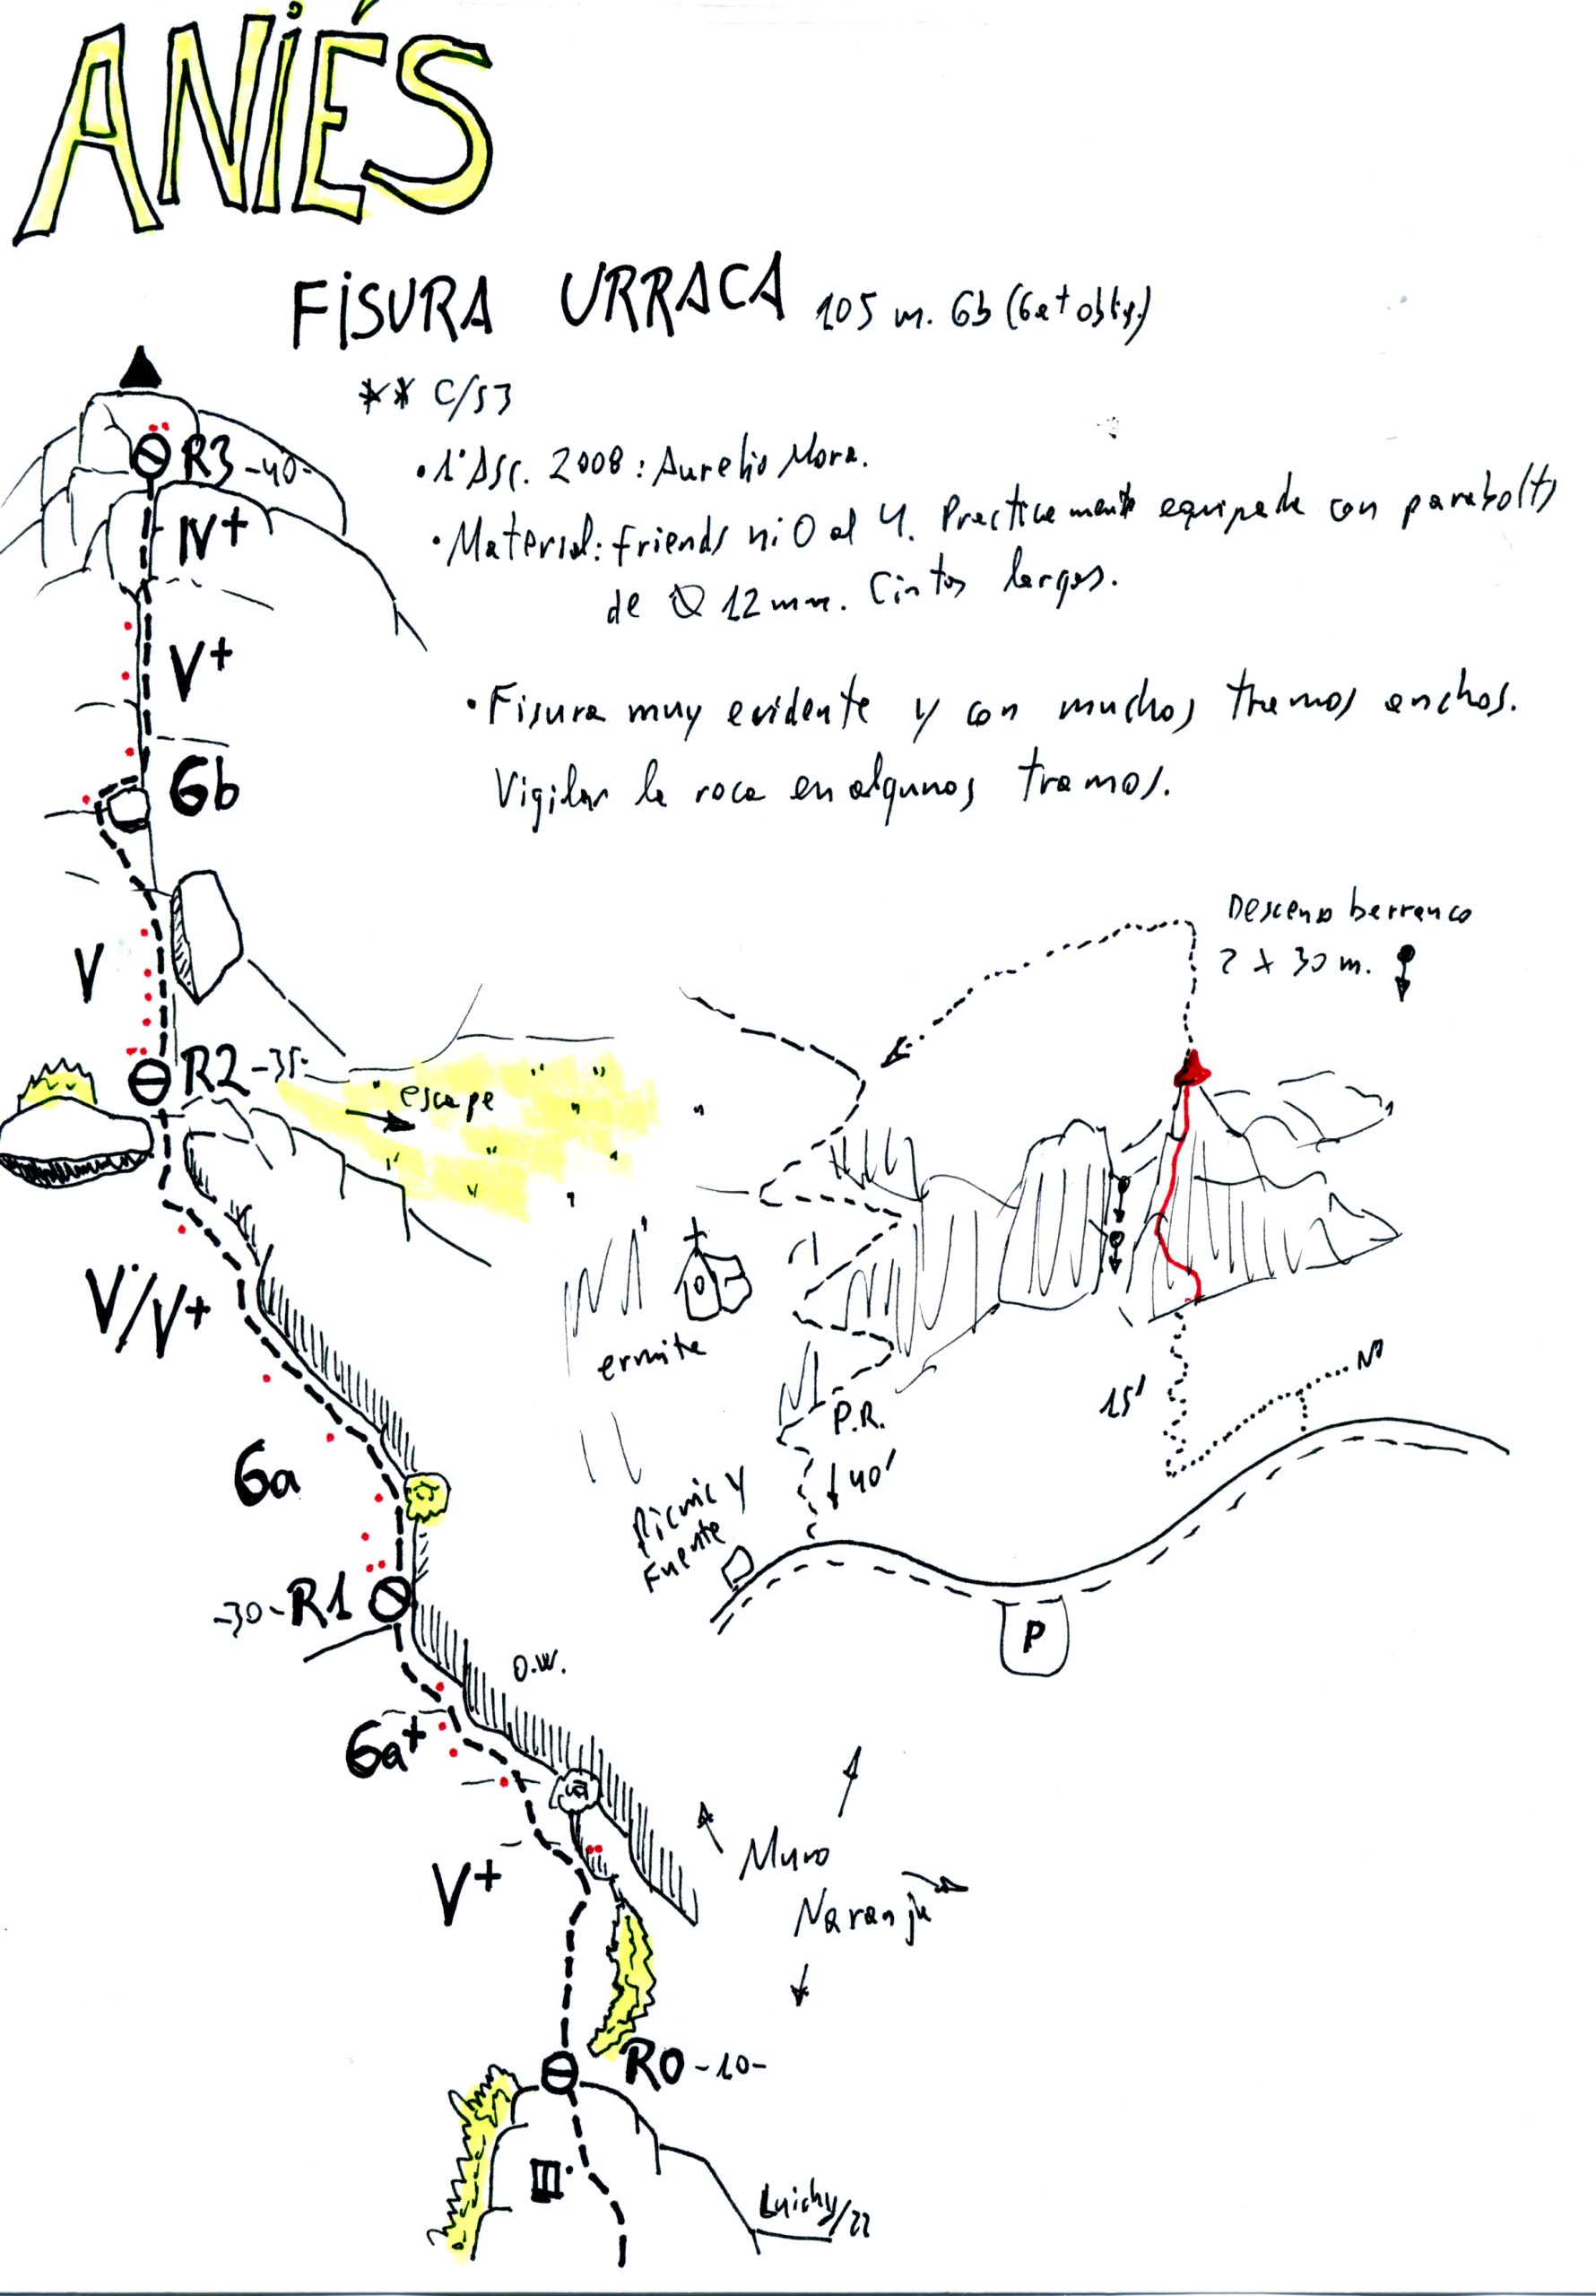 ANIÉS
FISURA URRACA 105 m. 6b (6a+ oblig.)
** C/S3
• 1ª Asc. 2008: Aurelio Mora.
• Material: friends nº 0 al 4. Practicamente equipada con parabolts
de Ø 12 mm. Cintas largas.
• Fisura muy evidente y con muchos tramos anchos.
Vigilar la roca en algunos tramos.
R3 -40-
IV+
V+
6b
V
R2 -35-
escape
V/V+
6a
-30- R1
O.W.
6a+
V+
Muro
Naranja
R0 -10-
III
Luichy/22
Descenso barranco
2 x 30 m.
ermita
P.R.
40'
15'
Picnic y
Fuente
P